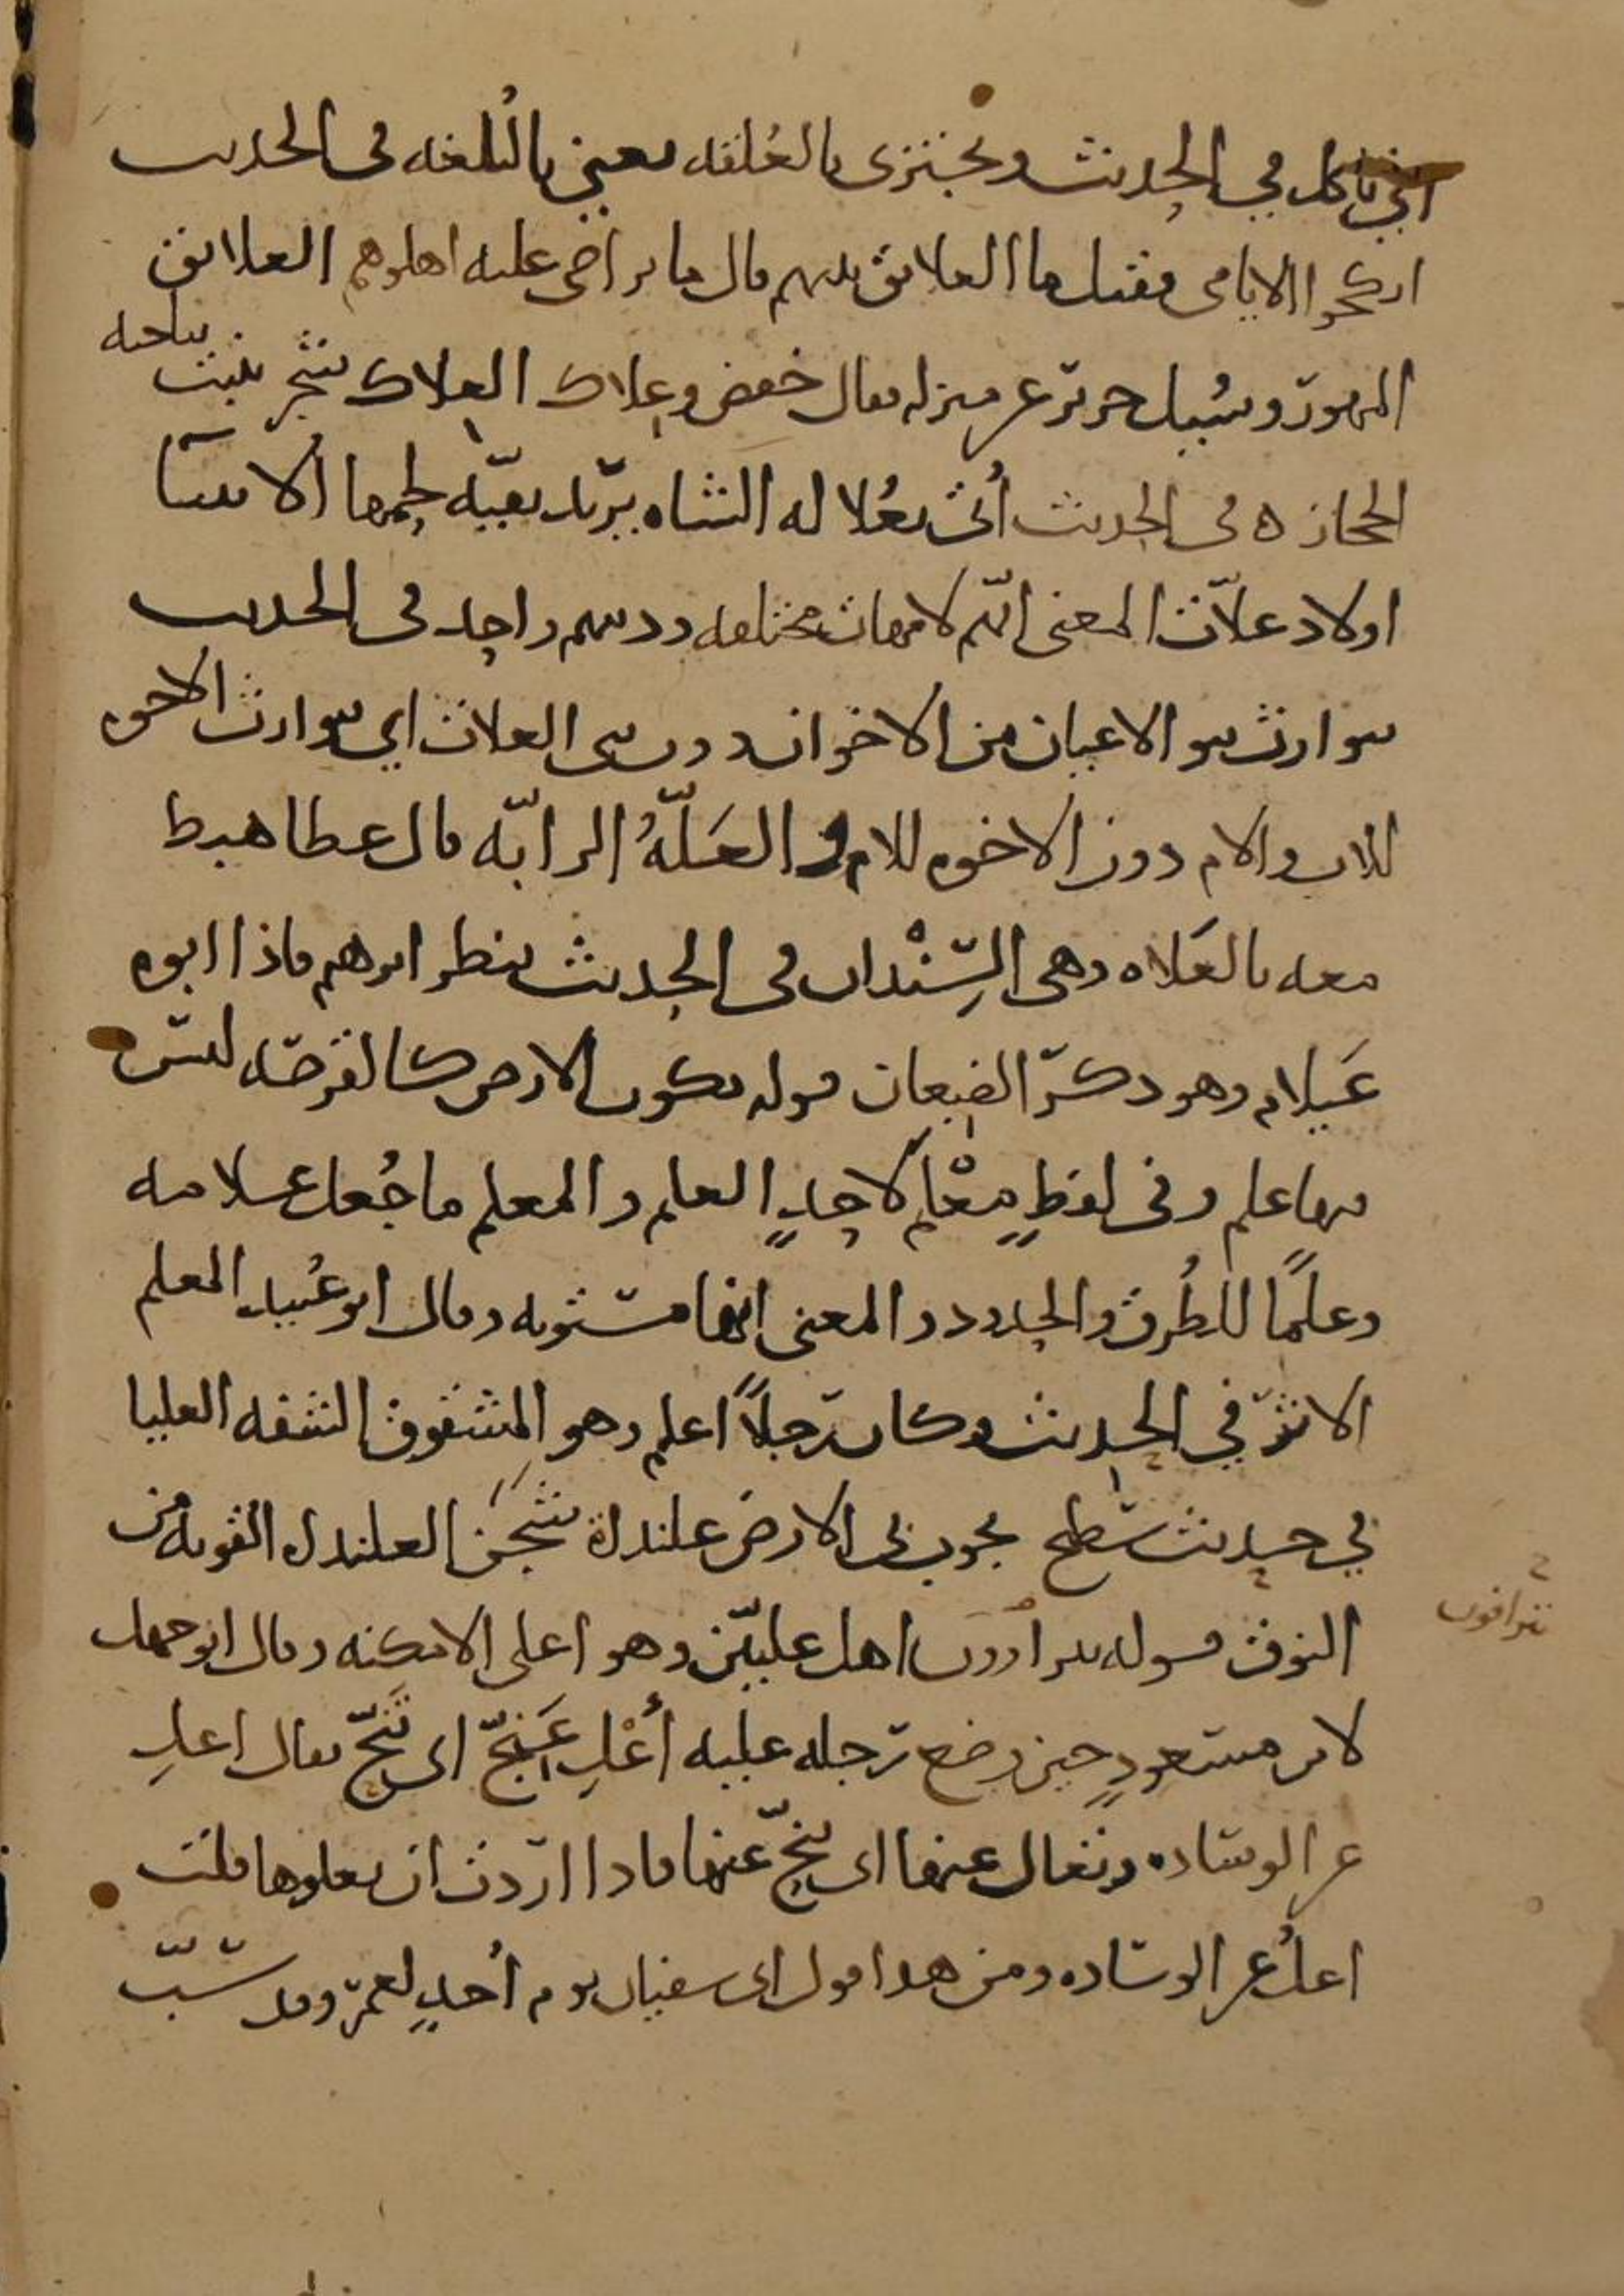 اي تاكل في الحديث ويجتزي بالعُلقه يعني بالبُلغه في الحديث
انكحوا الايامى فقيل ما العلايق بينهم قال ما تراضى عليه اهلوهم العلايق
المهور وسُيل جرير عن منزله فقال خمض وعلاك العلاك شجر ينبت بناحيه
الحجاز ه في الحديث أُتي بعُلاله الشاه يريد بقيّه لحمها الانبيا
اولاد علاّت المعنى انّهم لامهات مختلفه ودينهم واحد في الحديث
يتوارث بنو الاعيان من الاخوان دون بني العلات اي يتوارث الاخوه
للاب والام دون الاخوه للام والعَلّهُ الرابّه قال عطا هبط
معه بالعَلاه وهي السِّنْدان في الحديث ينظر ابرهيم فاذا ابوه
عَيلام وهو ذكر الضبعان قوله تكون الارض كالقرصه ليس
فيها علم وفي لفظٍ مَعْلم لاحدٍ العلم والمعلم ما جُعل علامه
وعلمًا للطُرق والحدود والمعنى انها مستويه وقال ابو عُبيد المعلم
الاثر في الحديث وكان رجلاً اعلم وهو المشقوق الشفه العليا
في حديث سطيح تجوب بي الارض علنداة شَجَن العلنداه القويه من
النوق قوله يتراءون اهل عليّين وهو اعلى الامكنه وقال ابو جهل
تتراءون
لابن مسعودٍ حين وضع رجله عليه أَعْلِ عَنِّجّ اي تَنَحّ يقال اعلِ
عن الوساده وتعال عنها اي تنحّ عنها فاذا اردت ان يعلوها قلت
اعلُ عن الوساده ومن هذا قول ابي سفيان يوم أُحدٍ لعمر وقد سبّ